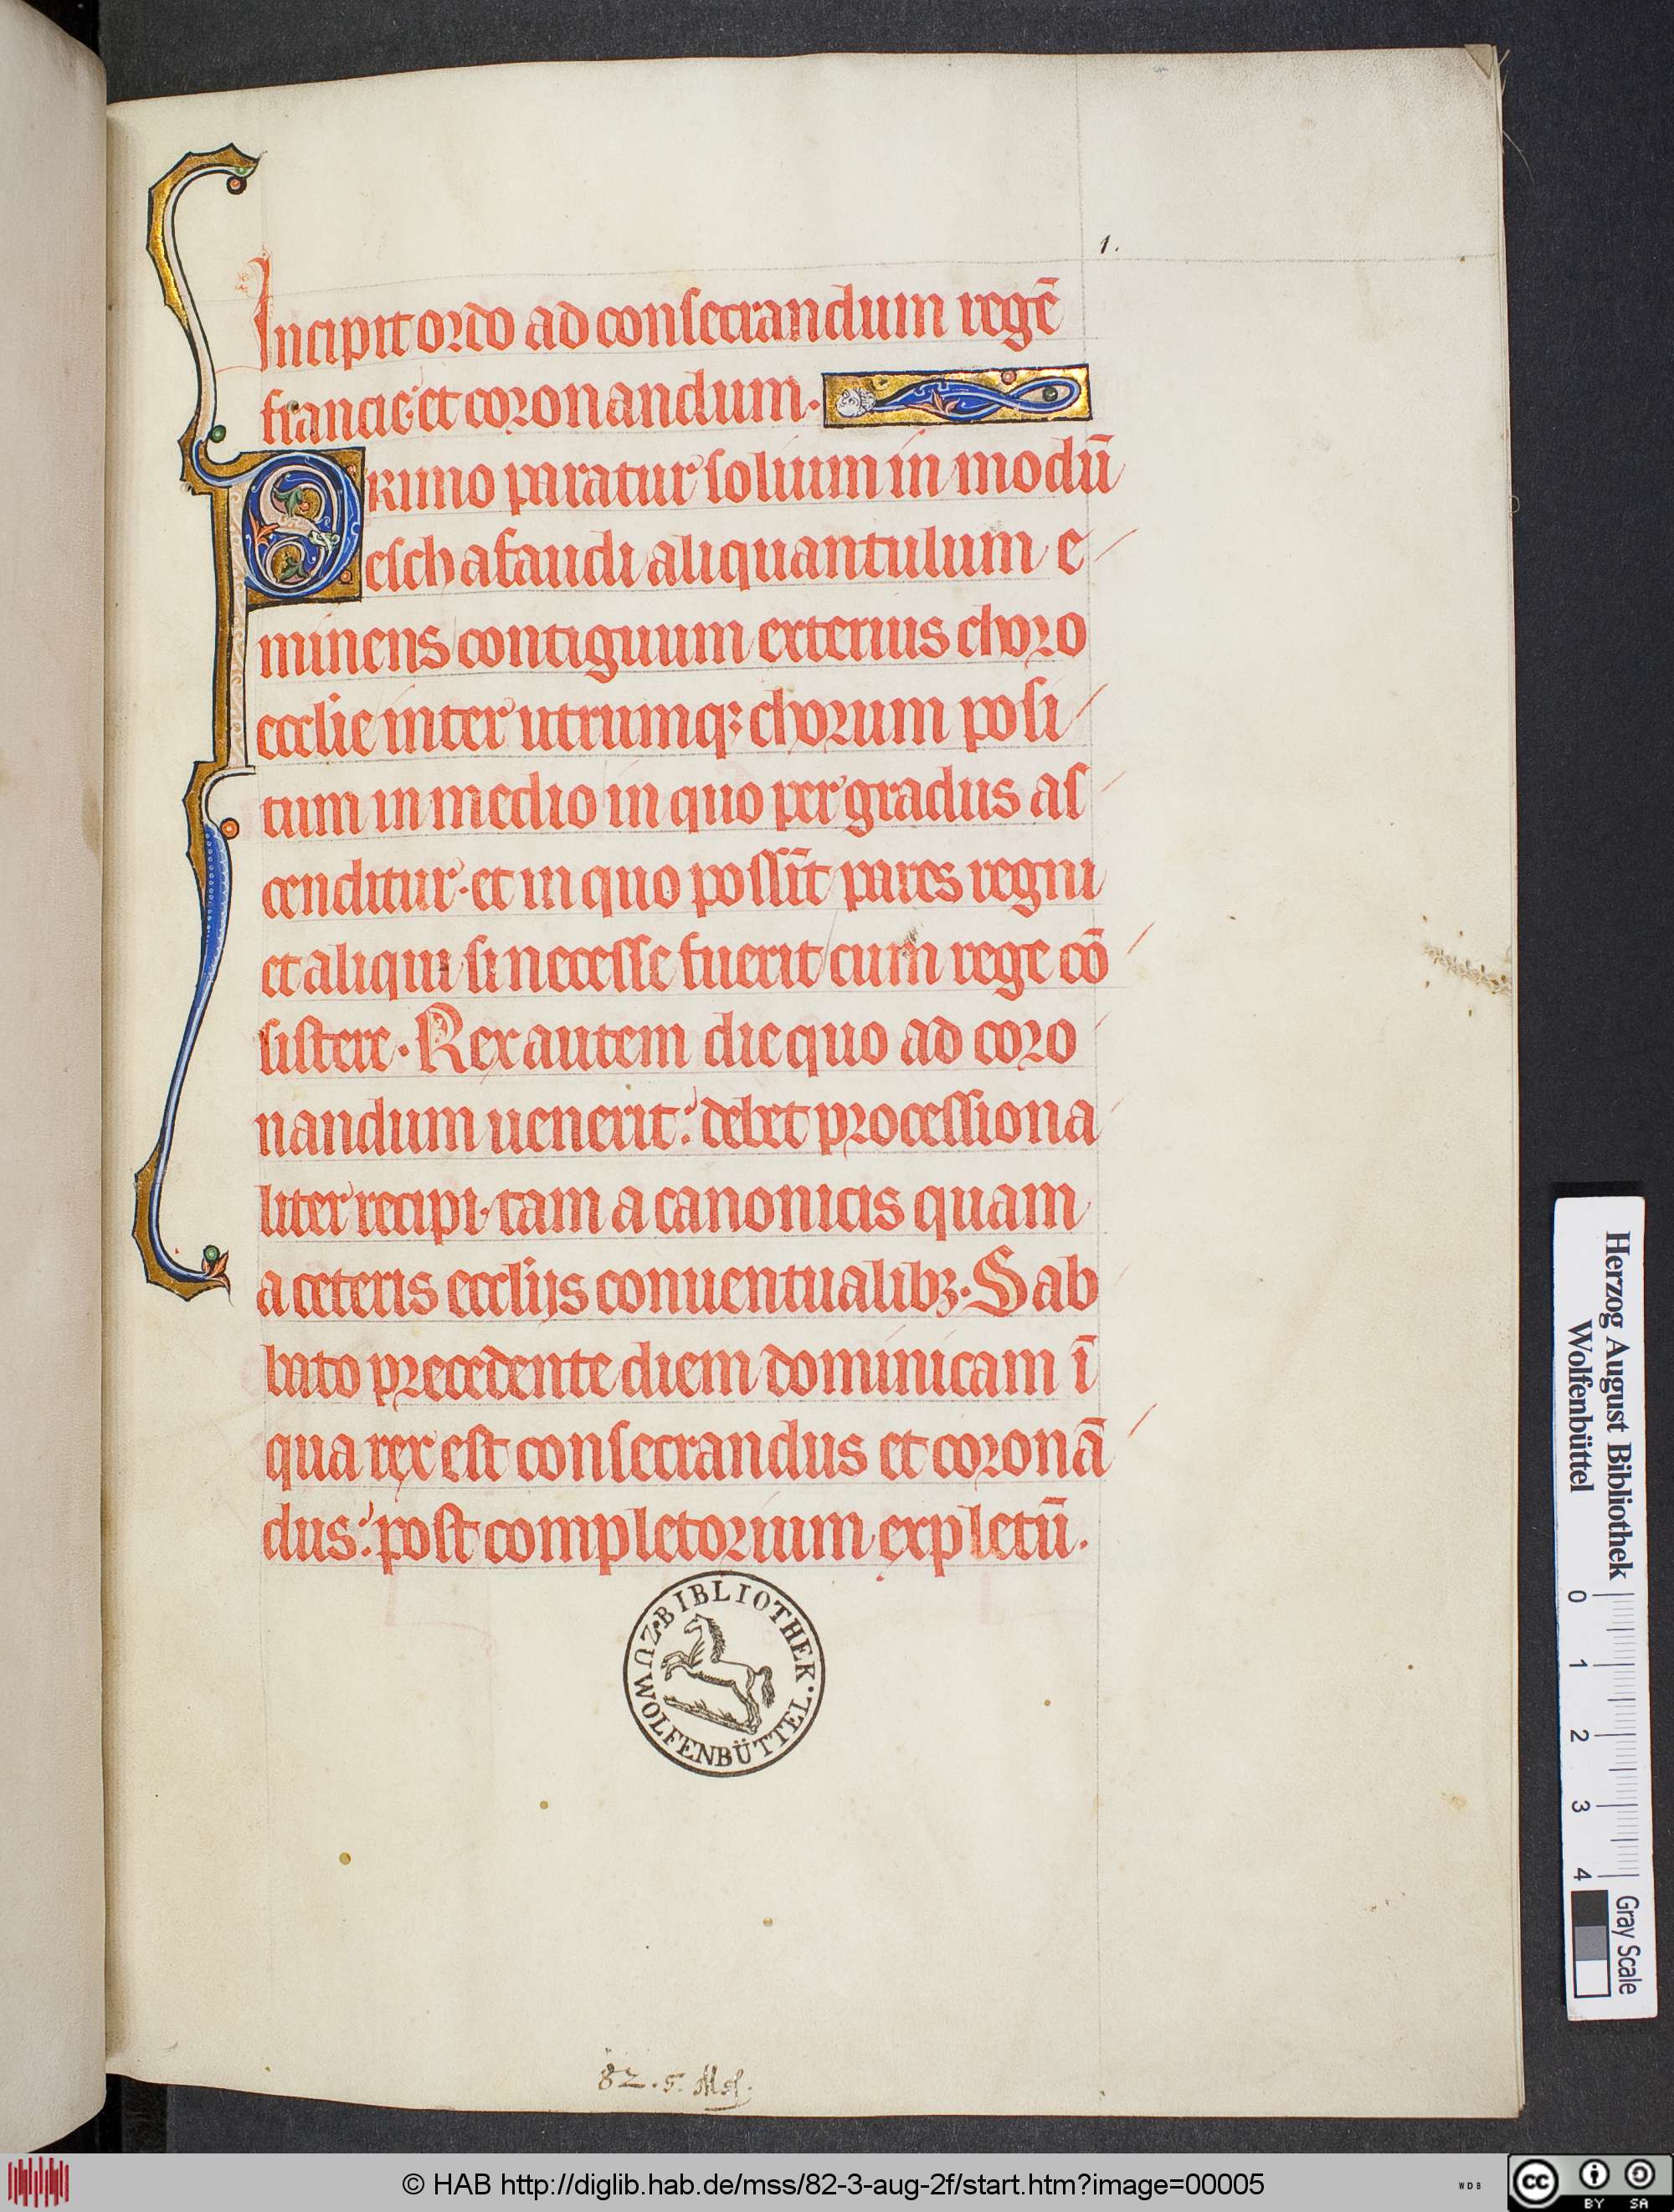 1.
Incipit ordo ad consecrandum regē
francie et coronandum.
PRimo paratur solium in modū
eschafaudi aliquantulum e
minens contiguum exterius choro
ecclie inter utrumqꝫ chorum posi
tum in medio in quo per gradus as
cenditur. et in quo possīt pares regni
et aliqui si necesse fuerit cum rege cō
sistere. Rex autem die quo ad coro
nandum uenerit: debet processiona
liter recipi. tam a canonicis quam
a ceteris ecclijs conuentualibꝫ. Sab
bato precedente diem dominicam ī
qua rex est consecrandus et coronā
dus: post completorium expletū.
BIBLIOTHEK. WOLFENBÜTTEL
82. 5. Msſ.
Herzog August Bibliothek
Wolfenbüttel
0 1 2 3 4
Gray Scale
© HAB http://diglib.hab.de/mss/82-3-aug-2f/start.htm?image=00005
WDB
cc BY SA